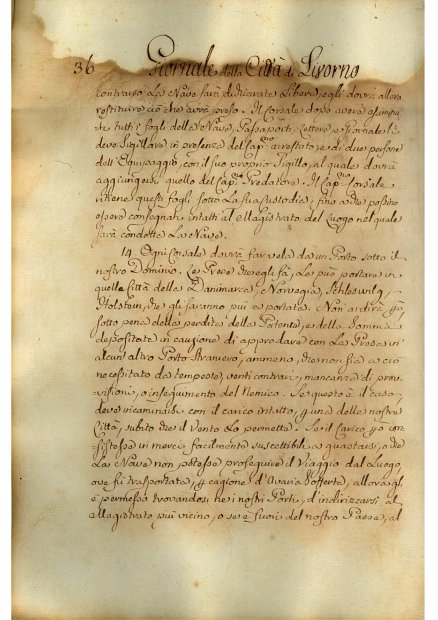 36 Giornale della Città di Livorno
contrario La Nave sarà dichiarata Libera, egli dovrà allora
restituire ciò che avrà preso. Il Corsale dopo avere esamina
te tutti i fogli della Nave, Passaporti, Lettere, e Giornale li
deve Sigillare in presenza del Cap.no arrestato, e di due persone
dell'Equipaggio, con il suo proprio Sigillo, al quale dovrà
aggiungersi quello del Cap.no Predatore. Il Cap.no Corsale
ritiene questi fogli sotto La sua Custodia, fino a che possino
essere consegnati intatti al Magistrato del Luogo nel quale
sarà condotta La Nave.
14. Ogni Corsale dovrà far vela da un Porto sotto il
nostro Dominio. Le Prese che egli fà, Le può portare in
quelle Città della Danimarca, Norvegia, Schleswig,
Holstein, che gli saranno più a portata. Non ardirà però
sotto pena della perdita della Patente, e della Somma
depositata in cauzione di approdare con La Presa in
alcun'altro Porto Straniero, ammeno, che non sia a ciò
necessitato da tempeste, venti contrari, mancanza di prov,
visioni, o inseguimento del Nemico. Se questo è il caso,
deve incaminarsi con il carico intatto, per una delle nostre
Città, subito che il Vento Lo permette. Se il Carico però con
sistesse in merci facilmente suscettibili a guastarsi, o che
La Nave non potesse proseguire il Viaggio dal Luogo,
ove fù trasportata, per cagione d'Avaria Sofferta, allora gli
è permesso trovandosi nei nostri Porti, d'indirizzarsi al
Magistrato più vicino, o se è fuori del nostro Paese, al